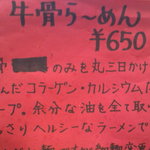 牛骨ら〜めん
¥650
のみを丸三日かけ
んだコラーゲン・カルシウム
ープ。余分な油を全て取
さりヘルシーなラーメンで